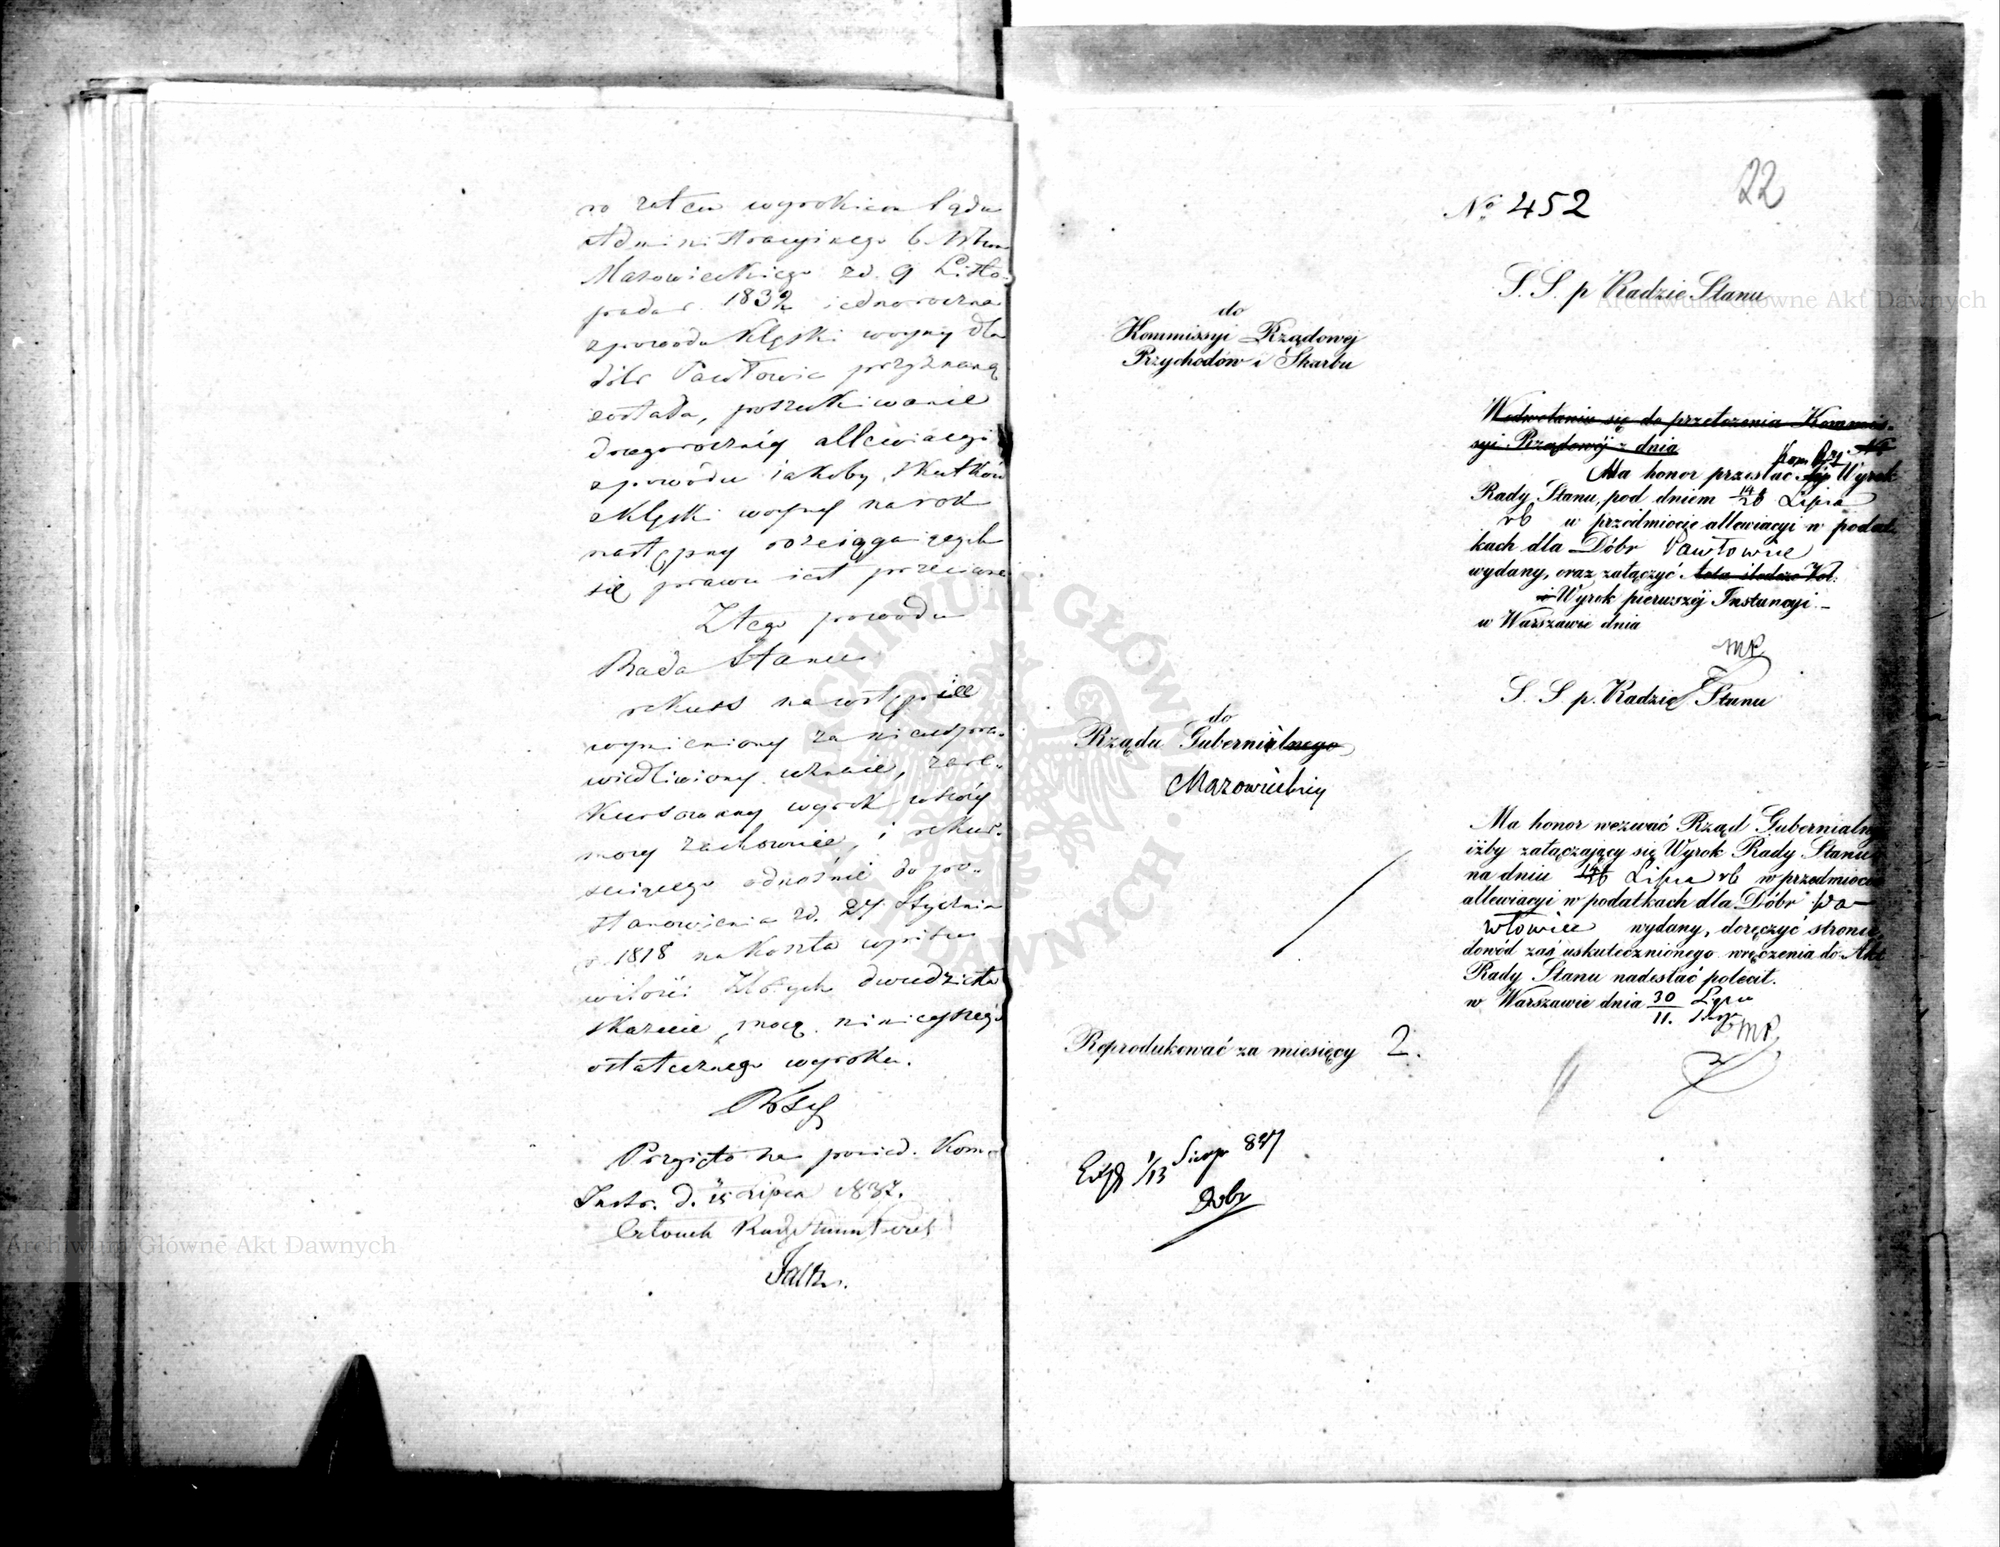 wyrokiem Sądu
Administracyjnego b. Wtwa
Mazowieckiego zd. 9 Listo-
pada r. 1832 jednoroczna
zpowodu klęski woyny dla
dóbr Pawłowic przyznaną
została, poszukiwanie
drugorocznéy allewiacyi
zpowodu jakoby skutków
klęski woyny na rok
następny rozciągaiących
się prawu iest przeciwne
Z tego powodu
Rada Stanu
rekurs na wstępie
wymieniony za nieuspra-
wiedliwiony uznaie, zare-
kursowany wyrok wswéy
mocy zachowuie, i rekur-
ruiącego odnośnie do po-
stanowienia zd. 27 Stycznia
r. 1818 na koszta wpisu
wilości Złotych dwudziestu
skazuie, mocą ninieyszego
ostatecznego wyroku.
Przyięto na posied. Kom.
Instr. d. 15 Lipca 1837.
Członek Rady Stanu
22
No 452
S. S. p Radzie Stanu
do
Kommissyi Rządowej
Przychodów i Skarbu
Wodwołaniu się do przełożenia Kommis-
syi Rządowéj z dnia No
Kom. Rz.
Ma honor przesłać Jéj Wyrok
Rady Stanu, pod dniem Lipca
rb w przedmiocie allewiacyi w podat-
kach dla Dóbr Pawłowice
wydany, oraz załączyć Acta śledcze Vol:
i Wyrok pierwszéj Instancyi –
w Warszawie dnia
S. S p. Radzie Stanu
do
Rządu Gubernialnego
Mazowieckiey
Ma honor wezwać Rząd Gubernialny
iżby załączający się Wyrok Rady Stanu
na dniu Lipca rb w przedmiocie
allewiacyi w podatkach dla Dóbr Pa-
włowice wydany, doręczyć stronie,
dowód zaś uskutecznionego wręczenia do Akt
Rady Stanu nadesłać polecił.
w Warszawie dnia 30/11. Lipca
Reprodukować za miesięcy 2.
Exp 1/13 Sierp 837
Archiwum Główne Akt Dawnych
Archiwum Główne Akt Dawnych
ARCHIWUM GŁÓWNE AKT DAWNYCH